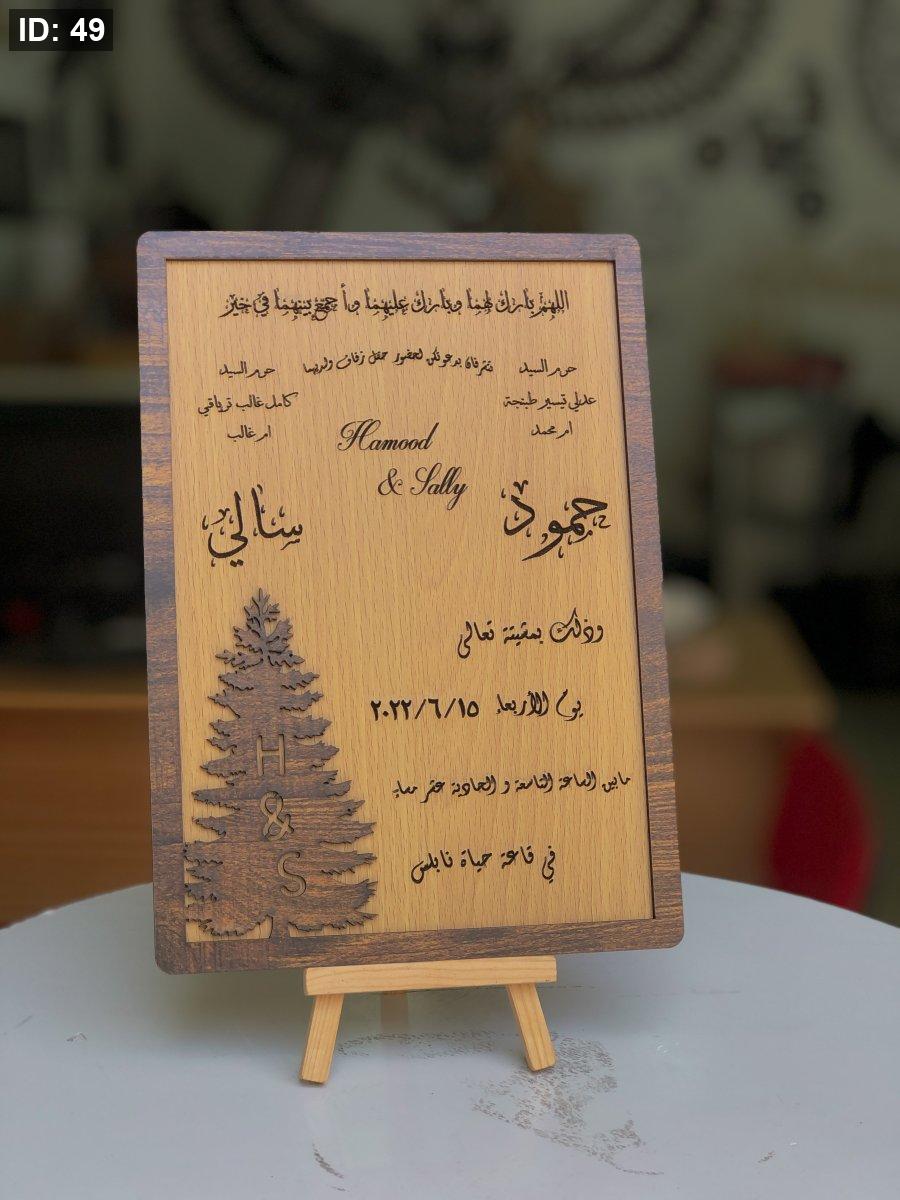 ID: 49
اللهم بارك لهما وبارك عليهما وأجمع بينهما في خير
حرم السيد
عدلي تيسير طبنجة
ام محمد
يتشرفان بدعوتكن لحضور حفل زفاف ولديهما
حرم السيد
كامل غالب ترياقي
ام غالب
Hamood
& Sally
حمود
سالي
وذلك بمشيئة تعالى
يوم الأربعاء ٢٠٢٢/٦/١٥
مابين الساعة التاسعة و الحادية عشر مساء
في قاعة حياة نابلس
H
&
S